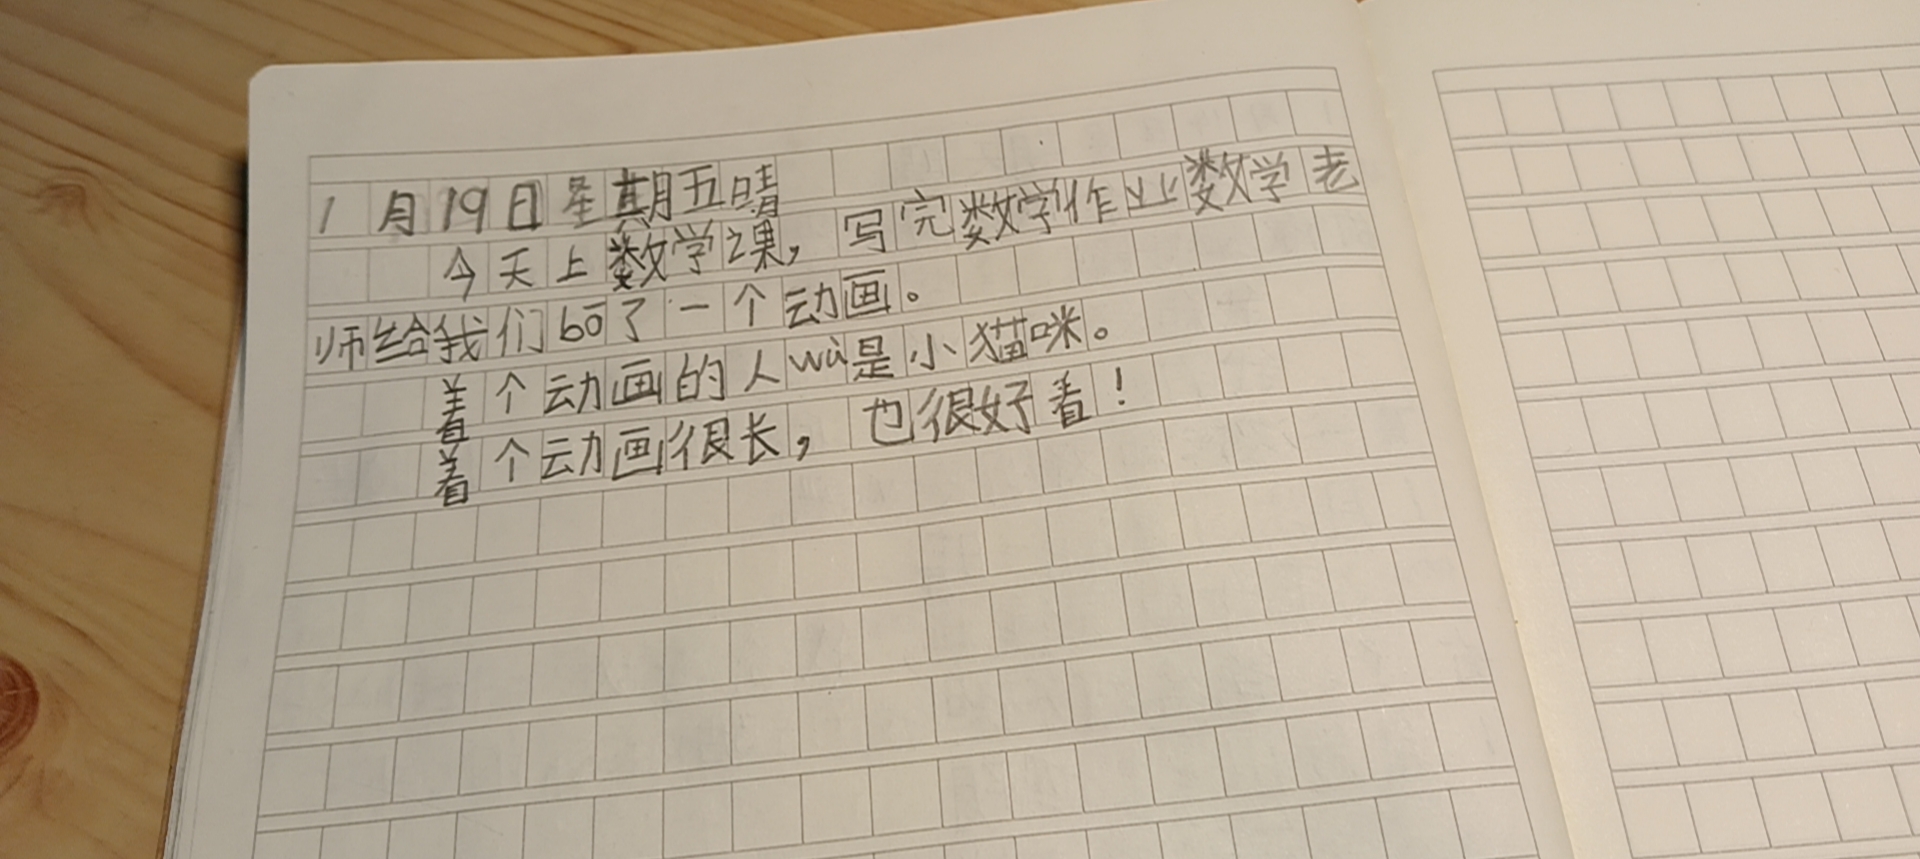 1月19日星期五晴
今天上数学课，写完数学作业数学老
师给我们bō了一个动画。
着个动画的人wù是小猫咪。
着个动画很长，也很好看！